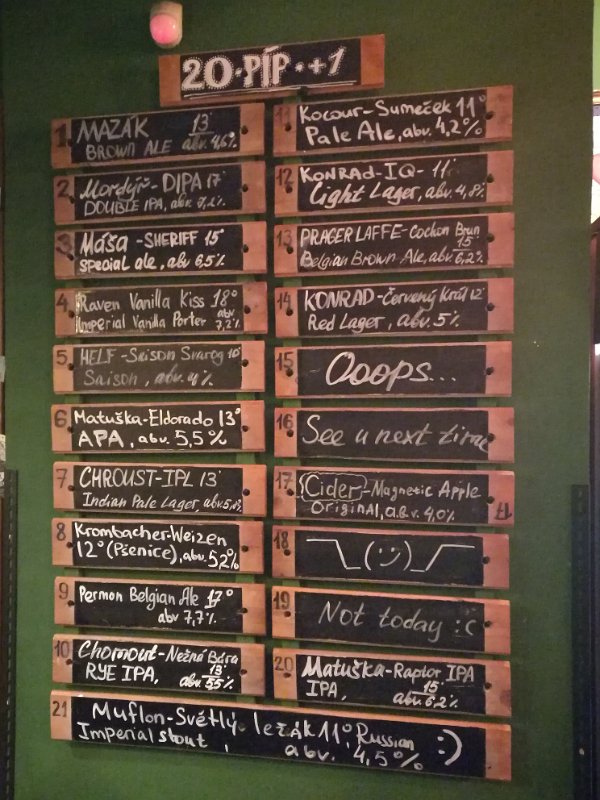 20·PÍP·+1
1. MAZÁK 13°
BROWN ALE abv. 4,6%
2. Mordýř-DIPA 17°
DOUBLE IPA, abv. 7,2%
3. Máša-SHERIFF 15°
special ale, abv 6,5%
4. Raven Vanilla Kiss 18°
Imperial Vanilla Porter abv 7,2%
5. HELF-Saison Svarog 10°
Saison, abv. 4%
6. Matuška-Eldorado 13°
APA, abv. 5,5%
7. CHROUST-IPL 13°
Indian Pale Lager, abv.
8 Krombacher-Weizen
12° (Pšenice), abv. 5,2%
9 Permon Belgian Ale 17°
abv 7,7%
10. Chomout-Nežná Bára
RYE IPA, 13° abv. 5,5%
11 Kocour-Sumeček 11°
Pale Ale, abv. 4,2%
12 KONRAd-IQ-11°
Light Lager, abv. 4,8%
13 PRAGER LAFFE-Cochon Brun
15°
Belgian Brown Ale, abv. 6,2%
14 KONRAD-Červený Král 12°
Red Lager, abv. 5%
15 Ooops...
16 See u next time
17 Cider-Magnetic Apple
OriginAl, a.b.v. 4,0%
18 ¯\_(:))_/¯
19 Not today :c
20 Matuška-Raptor IPA
IPA, 15° abv 6,2%
21 Muflon-Světlý ležák 11°, Russian
Imperial stout, abv. 4,5% :)